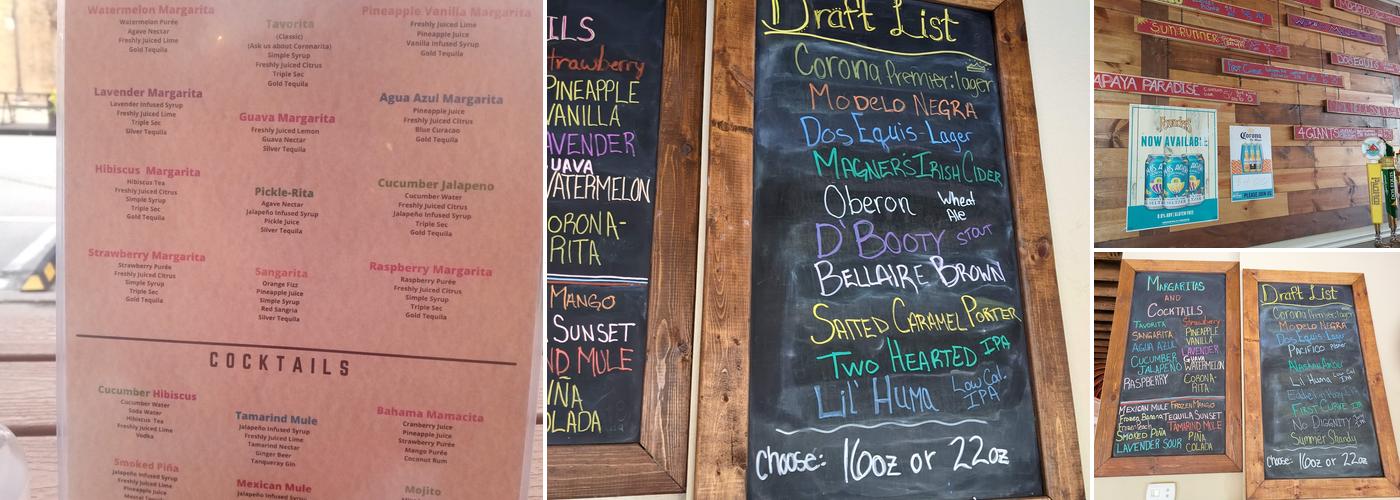 Watermelon Margarita
Watermelon Purée
Agave Nectar
Freshly Juiced Lime
Gold Tequila
Lavender Margarita
Lavender Infused Syrup
Freshly Juiced Lime
Triple Sec
Silver Tequila
Hibiscus Margarita
Hibiscus Tea
Freshly Juiced Citrus
Simple Syrup
Triple Sec
Gold Tequila
Strawberry Margarita
Strawberry Purée
Freshly Juiced Citrus
Simple Syrup
Triple Sec
Gold Tequila
Tavorita
(Classic)
(Ask us about Coronarita)
Simple Syrup
Freshly Juiced Citrus
Triple Sec
Gold Tequila
Guava Margarita
Freshly Juiced Lemon
Guava Nectar
Silver Tequila
Pickle-Rita
Agave Nectar
Jalapeño Infused Syrup
Pickle Juice
Silver Tequila
Sangarita
Orange Fizz
Pineapple Juice
Simple Syrup
Red Sangria
Silver Tequila
Pineapple Vanilla Margarita
Freshly Juiced Lime
Pineapple Juice
Vanilla Infused Syrup
Gold Tequila
Agua Azul Margarita
Pineapple Juice
Freshly Juiced Citrus
Blue Curacao
Gold Tequila
Cucumber Jalapeno
Cucumber Water
Freshly Juiced Citrus
Jalapeño Infused Syrup
Triple Sec
Gold Tequila
Raspberry Margarita
Raspberry Purée
Freshly Juiced Citrus
Simple Syrup
Triple Sec
Gold Tequila
COCKTAILS
Cucumber Hibiscus
Cucumber Water
Soda Water
Hibiscus Tea
Freshly Juiced Lime
Vodka
Smoked Piña
Jalapeño Infused Syrup
Freshly Juiced Lime
Pineapple Juice
Tamarind Mule
Jalapeño Infused Syrup
Freshly Juiced Lime
Tamarind Nectar
Ginger Beer
Tanqueray Gin
Mexican Mule
Jalapeño Infused Syrup
Bahama Mamacita
Cranberry Juice
Pineapple Juice
Strawberry Purée
Mango Purée
Coconut Rum
Mojito
ILS
trawberry
PINEAPPLE
VANILLA
AVENDER
UAVA
WATERMELON
ORONA-
RITA
MANGO
SUNSET
ND MULE
IÑA
OLADA
Draft List
Corona Premier:lager
MODELO NEGRA
Dos Equis-Lager
MAGNER'S IRISH CIDER
Oberon Wheat Ale
D'BOOTY STOUT
BELLAIRE BROWN
SALTED CARAMEL PORTER
TWO HEARTED IPA
Lil' Huma Low Cal. IPA
choose: 16oz or 22oz
SUN RUNNER
DOS EQUIS
APAYA PARADISE
4 GIANTS
NOW AVAILABLE
Corona
MARGARITAS
AND
COCKTAILS
TAVORITA
SANGARITA
AGUA AZUL
CUCUMBER
JALAPENO
RASPBERRY
Strawberry
PINEAPPLE
VANILLA
LAVENDER
GUAVA
WATERMELON
CORONA-
RITA
MEXICAN MULE
Frozen Banana
Frozen Peach
SMOKED PIÑA
LAVENDER SOUR
FROZEN MANGO
TEQUILA SUNSET
TAMARIND MULE
PIÑA
COLADA
Draft List
Corona Premier:lager
MODELO NEGRA
Dos Equis-Lager
PACIFICO
Lil Huma Low Cal IPA
FIRST CURVE IPA
NO DIGGNITY
Summer Shandy
choose: 16oz or 22oz